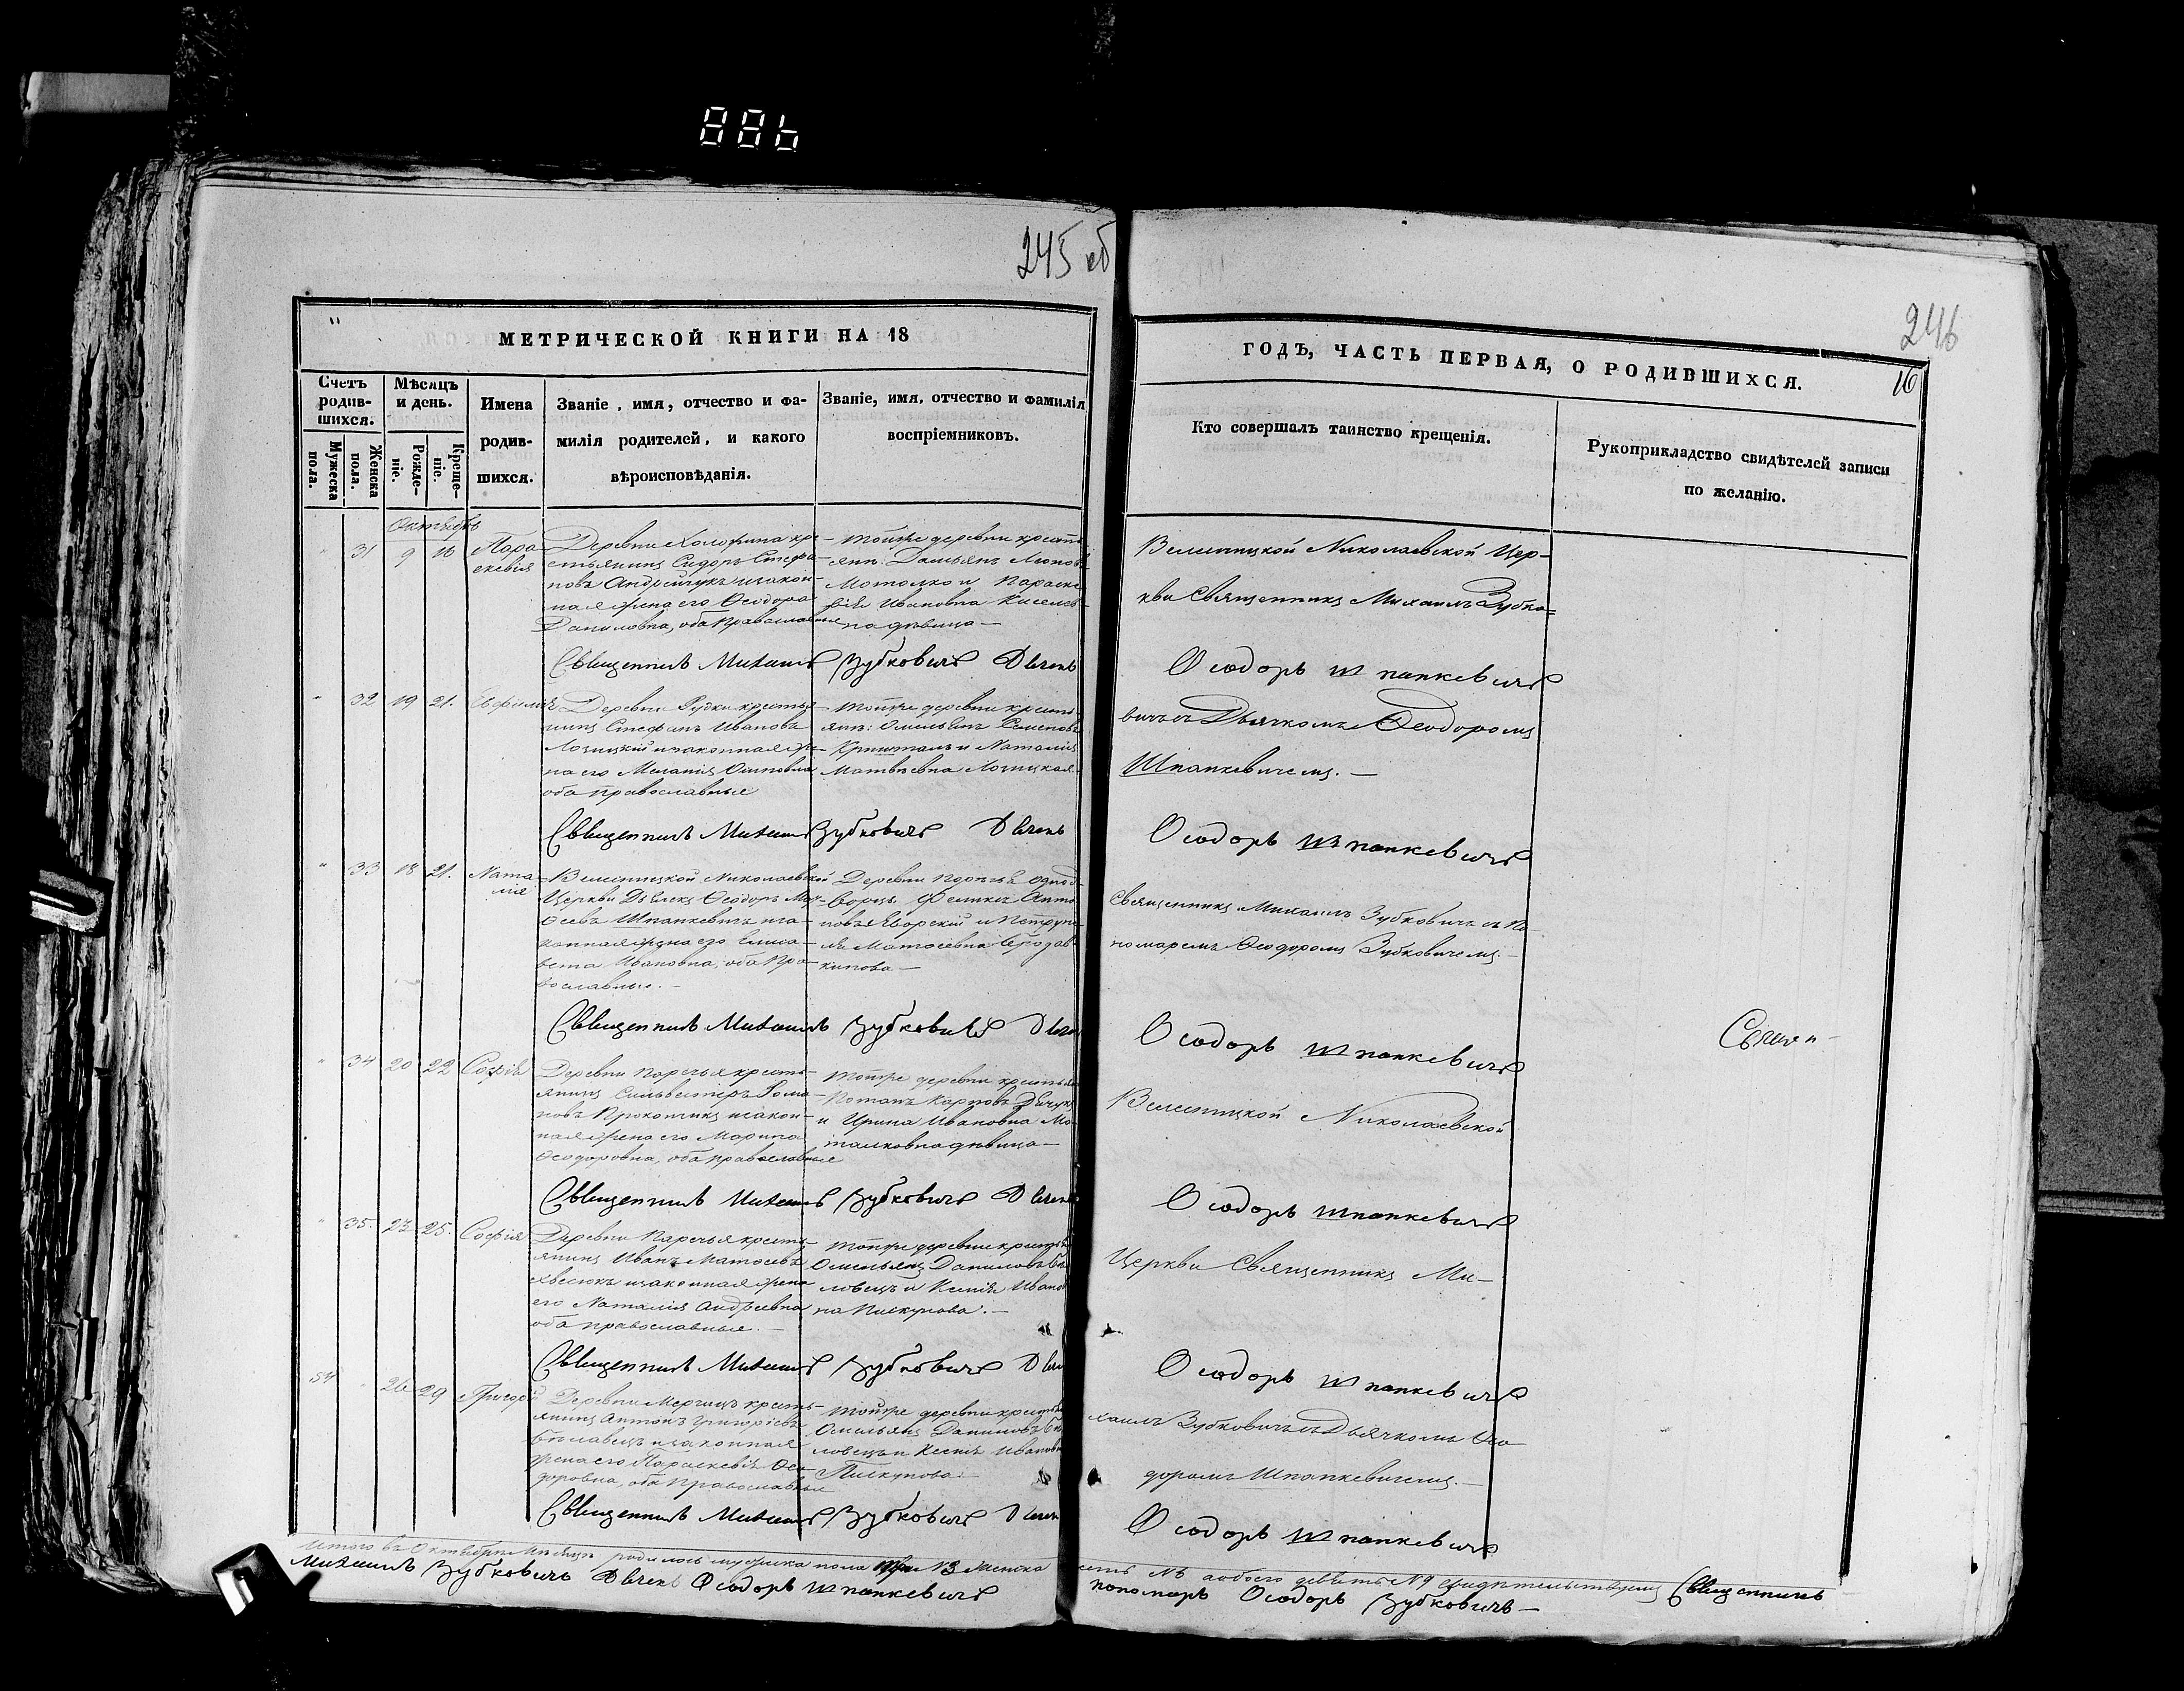 886
245 об
246
16
МЕТРИЧЕСКОЙ КНИГИ НА 18
ГОДЪ, ЧАСТЬ ПЕРВАЯ, О РОДИВШИХСЯ.
Счетъ родив-
шихся.
Мужеска пола.
Женска пола.
Мѣсяцъ
и день.
Рожде-
ніе.
Креще-
ніе.
Имена
родив-
шихся.
Званіе, имя, отчество и фа-
милія родителей, и какого
вѣроисповѣданія.
Званіе, имя, отчество и фамилія
воспріемниковъ.
Кто совершалъ таинство крещенія.
Рукоприкладство свидѣтелей записи
по желанію.
Октябрь
31 9 16 Пара-
скевія
Деревни кре-
стьянинъ Сидоръ Стефа-
новъ Андрейчукъ и закон-
ная жена его Ѳеодора
Даниловна, оба православные
Тойже деревни кресть-
янн: Дамьянъ
Мотолко и Параске-
вія Ивановна
дѣвица
Велетицкой Николаевской Цер-
кви Священникъ Михаилъ Зубко-
Священникъ Михаилъ Зубковичъ Дьячекъ
Ѳеодоръ Шпанкевичъ
32 19 21. Евфимія
Деревни Рудки крестья-
нинъ Стефанъ Ивановъ
Лозицкій и законная же-
на его Меланія Осиповна
оба православные
Тойже деревни кресть-
янн: Омельянъ Семеновъ
Кришталь и Наталія
Матвѣевна Лозицкая
вичъ съ Дьячкомъ Ѳеодоромъ
Шпанкевичемъ.
Священникъ Михаилъ Зубковичъ Дьячекъ
Ѳеодоръ Шпанкевичъ
33 18 21. Ната-
лія
Велетицкой Николаевской
Церкви Дьячекъ Ѳеодоръ Мат-
ѳеевъ Шпанкевичъ и за-
конная жена его Елиса-
вета Ивановна, оба пра-
вославные.
Деревни однод-
ворецъ Феликсъ Анто-
новъ Яворскій и Петруне-
ля Матѳеевна
Священникъ Михаилъ Зубковичъ съ По-
номаремъ Ѳеодоромъ Зубковичемъ.
Священникъ Михаилъ Зубковичъ Дьячекъ
Ѳеодоръ Шпанкевичъ
34 20 22 Софія
Деревни Паречья кресть-
янинъ Сильвестеръ Рома-
новъ Прокопчикъ и закон-
ная жена его Марина
Ѳеодоровна, оба православные
Тойже деревни крестьян
Потапъ Карповъ
и Ирина Ивановна Мо-
талковна дѣвица
Велетицкой Николаевской
Священникъ Михаилъ Зубковичъ Дьячекъ
Ѳеодоръ Шпанкевичъ
35. 23 25. Софія
Деревни Паречья кресть-
янинъ Иванъ Матѳеевъ
и законная жена
его Наталія Андреевна
оба православные.
Тойже деревни крестьян
Омельянъ Даниловъ Бѣ-
ловецъ и Ксенія Иванов-
на Пискунова.
Церкви Священникъ Ми-
Священникъ Михаилъ Зубковичъ Дьячекъ
Ѳеодоръ Шпанкевичъ
54 26 29 Григорій
Деревни кресть-
янинъ Антонъ Григорьевъ
и законная
жена его Параскевія Ѳео-
доровна, оба православные
Тойже деревни крестьян
Омельянъ Даниловъ Бѣ-
ловецъ и Ксенія Ивановна
Пискунова.
хаилъ Зубковичъ съ Дьячкомъ Ѳео-
доромъ Шпанкевичемъ.
Священникъ Михаилъ Зубковичъ Дьячекъ
Ѳеодоръ Шпанкевичъ
Итого въ Октябрѣ мѣсяцѣ родилось мужеска пола три №3 женска № 6 обоего девять №9 свидѣтельствуемъ Священникъ
Михаилъ Зубковичъ Дьячекъ Ѳеодоръ Шпанкевичъ пономарь Ѳеодоръ Зубковичъ